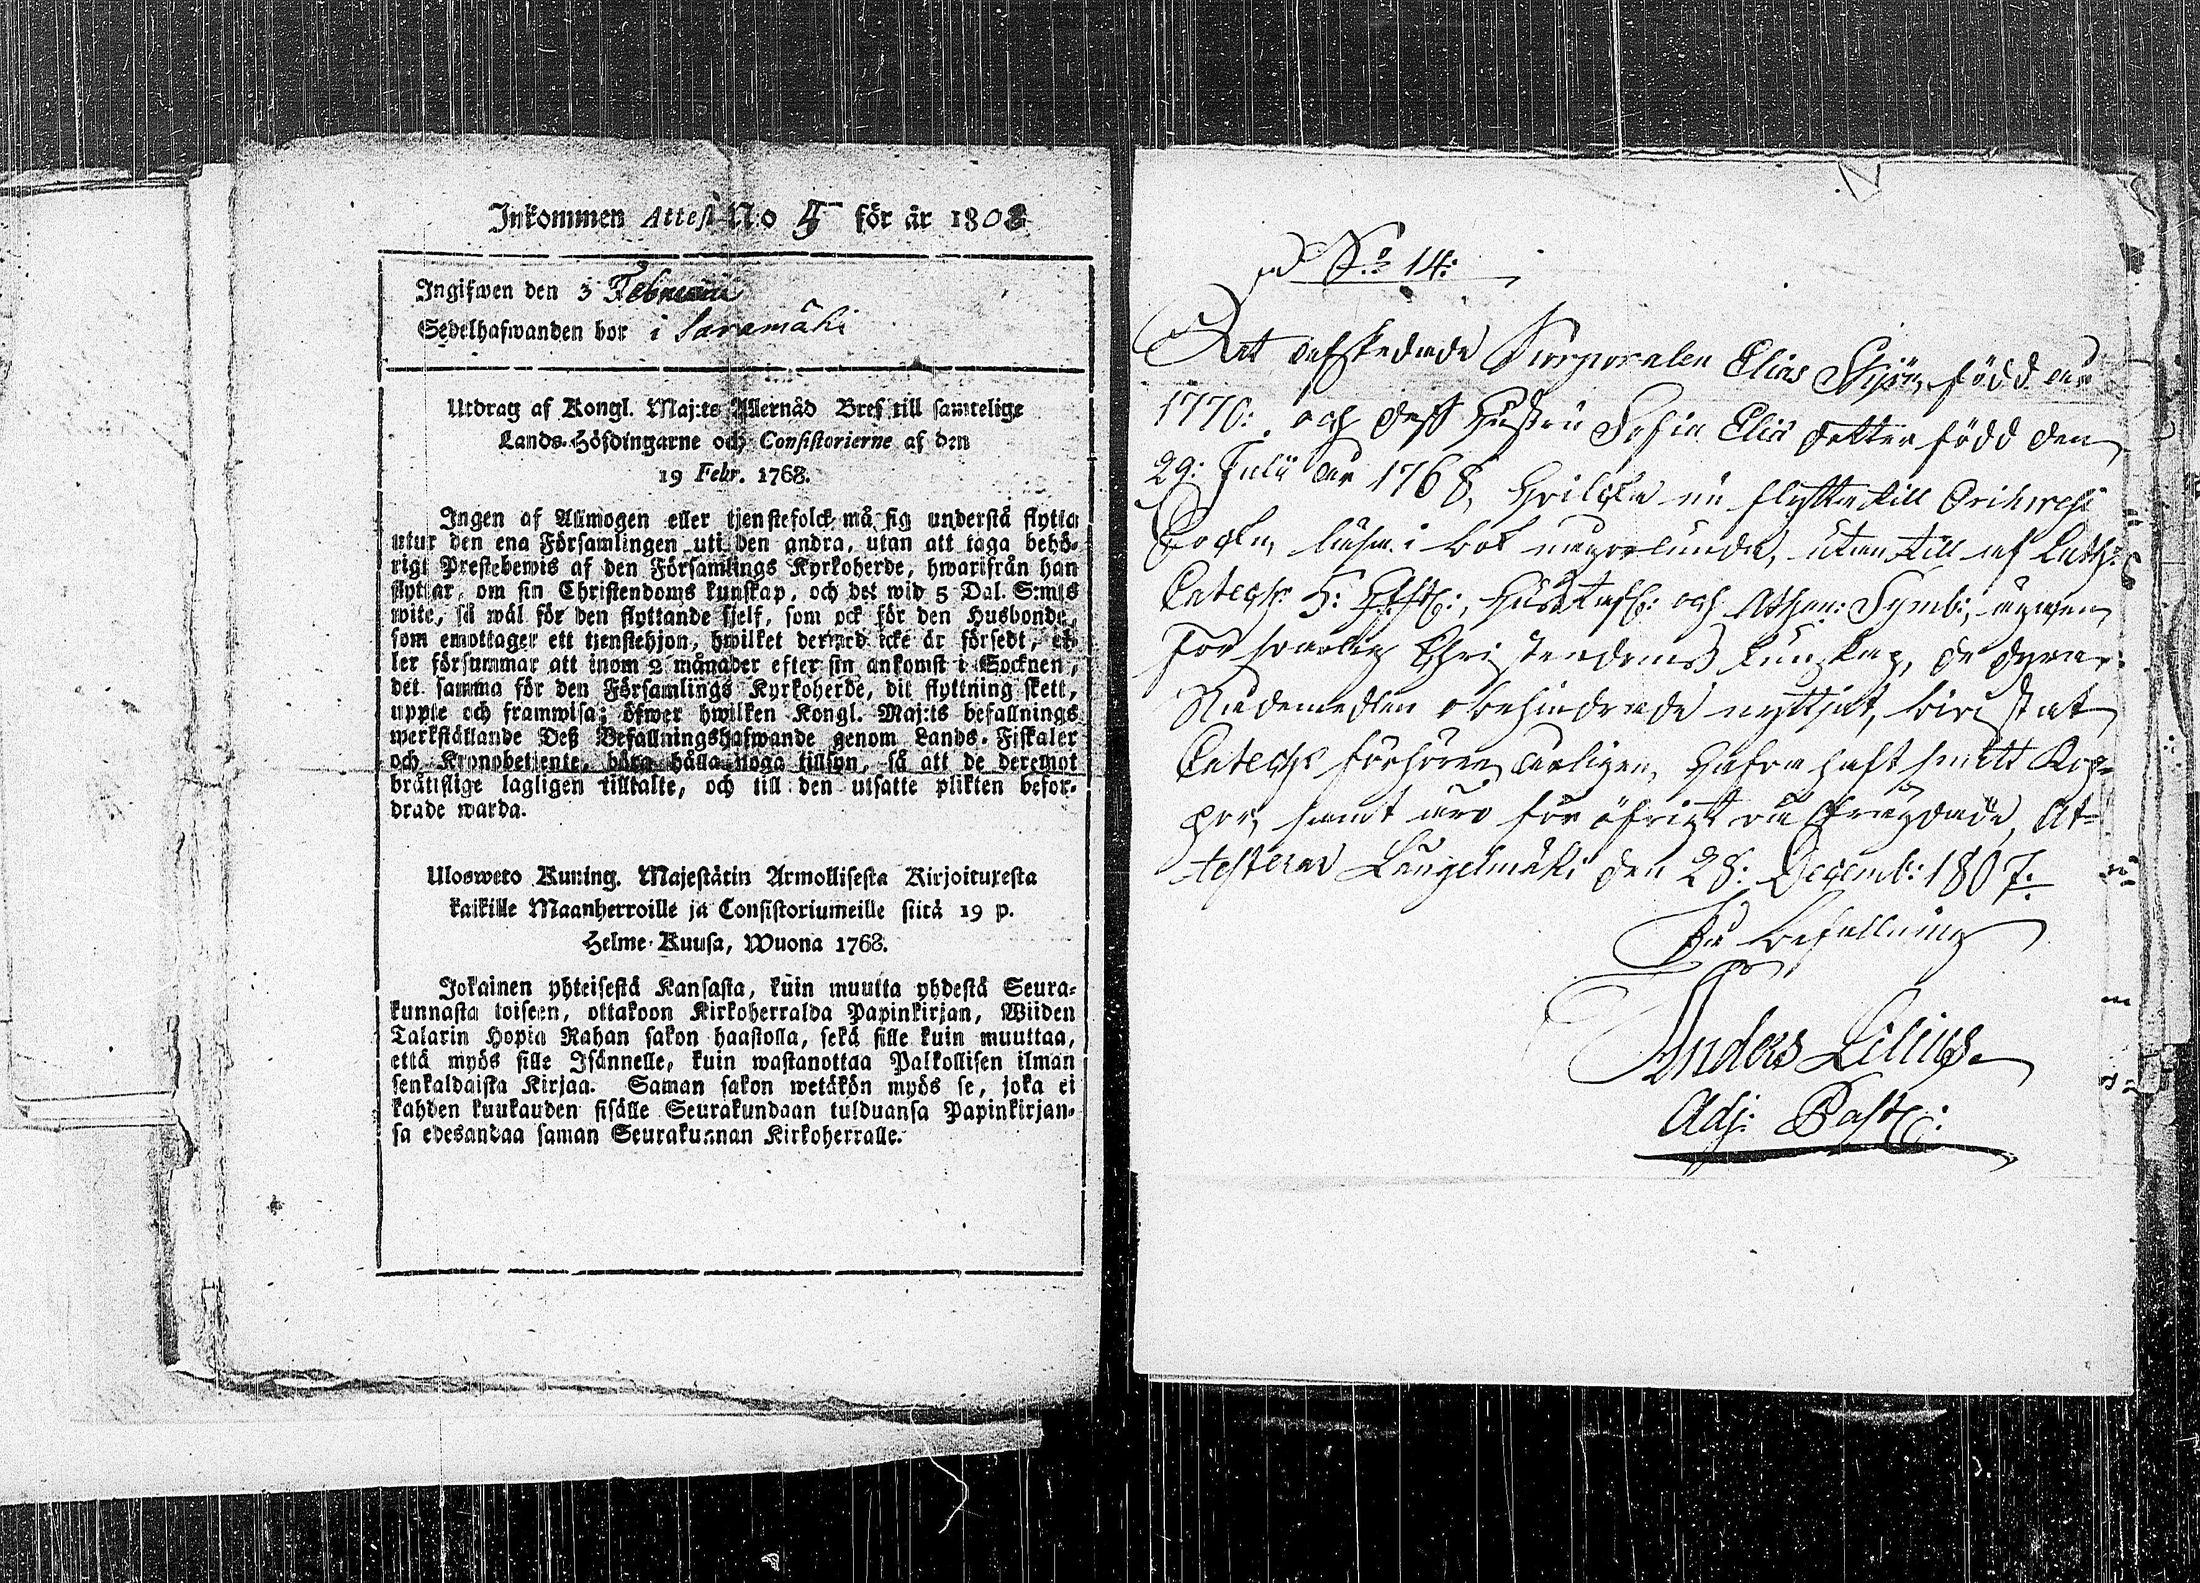 Inkommen Attest No 5 för år 1808
Ingifwen den 3 Februarii
Sedelhafwanden bor i Saramäki
Utdrag af Kongl. Maj:ts Allernåd Bref till samtelige
Lands-Höfdingarne och Consistorierne af den
19 Febr. 1768.
Ingen af Allmogen eller tjenstefolck må sig understå flytta
utur den ena Församlingen uti den andra, utan att taga behö-
rigt Prestebewis af den Församlings Kyrkoherde, hwarifrån han
flyttar, om sin Christendoms kunskap, och det wid 5 Dal. S:mts
wite, så wäl för den flyttande sjelf, som ock för den Husbonde,
som emottager ett tjenstehjon, hwilket dermed icke är försedt, el-
ler försummar att inom 2 månader efter sin ankomst i Socknen,
det samma för den Församlings Kyrkoherde, dit flyttning skett,
uppte och framwisa; öfwer hwilken Kongl. Maj:ts befallnings
werkställande Deß Befallningshafwande genom Lands-Fiskaler
och Kronobetjente, böra hålla noga tillsyn, så att de deremot
bråttslige lagligen tilltalte, och till den utsatte plikten befor-
drade warda.
Ulosweto Kuning. Majestätin Armollisesta Kirjoituxesta
kaikille Maanherroille ja Consistoriumeille siitä 19 p.
Helme-Kuusa, Wuona 1768.
Jokainen yhteisestä Kansasta, kuin muutta yhdestä Seura-
kunnasta toiseen, ottakoon Kirkoherralda Papinkirjan, Wiiden
Talarin Hopia Rahan sakon haastolla, sekä sille kuin muuttaa,
että myös sille Isännelle, kuin wastanottaa Palkollisen ilman
senkaldaista Kirjaa. Saman sakon wetäkön myös se, joka ei
kahden kuukauden sisälle Seurakundaan tulduansa Papinkirjan-
sa edesandaa saman Seurakunnan Kirkoherralle.
N:o 14:
Att afskedade Korporalen Elias född år
1770: och dess Hustru Sofia Eliæ dotter född den
29: Julii år 1768, hvilka nu flytta till Orihwesi
Sockn, läsa i bok någorlunda, utantill af Luth:
Catech: 5: Hustafl: och Athan: Symb:, ägwen
försvarlig Christendoms kunskap, de dyra
Nådemedlen obehindrade nyttjat, bivistat
Catech: förhören årligen, hafva haft smått Kop-
por, samt äro för öfrigt oberyktade, At-
testerar Längelmäki den 28: Decemb: 1807:
På befallning
Anders Lilius.
Adj: Past: